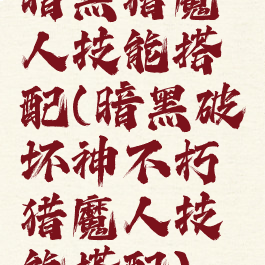 暗黑猎魔
人技能搭
配(暗黑破
坏神不朽
猎魔人技
能搭配)